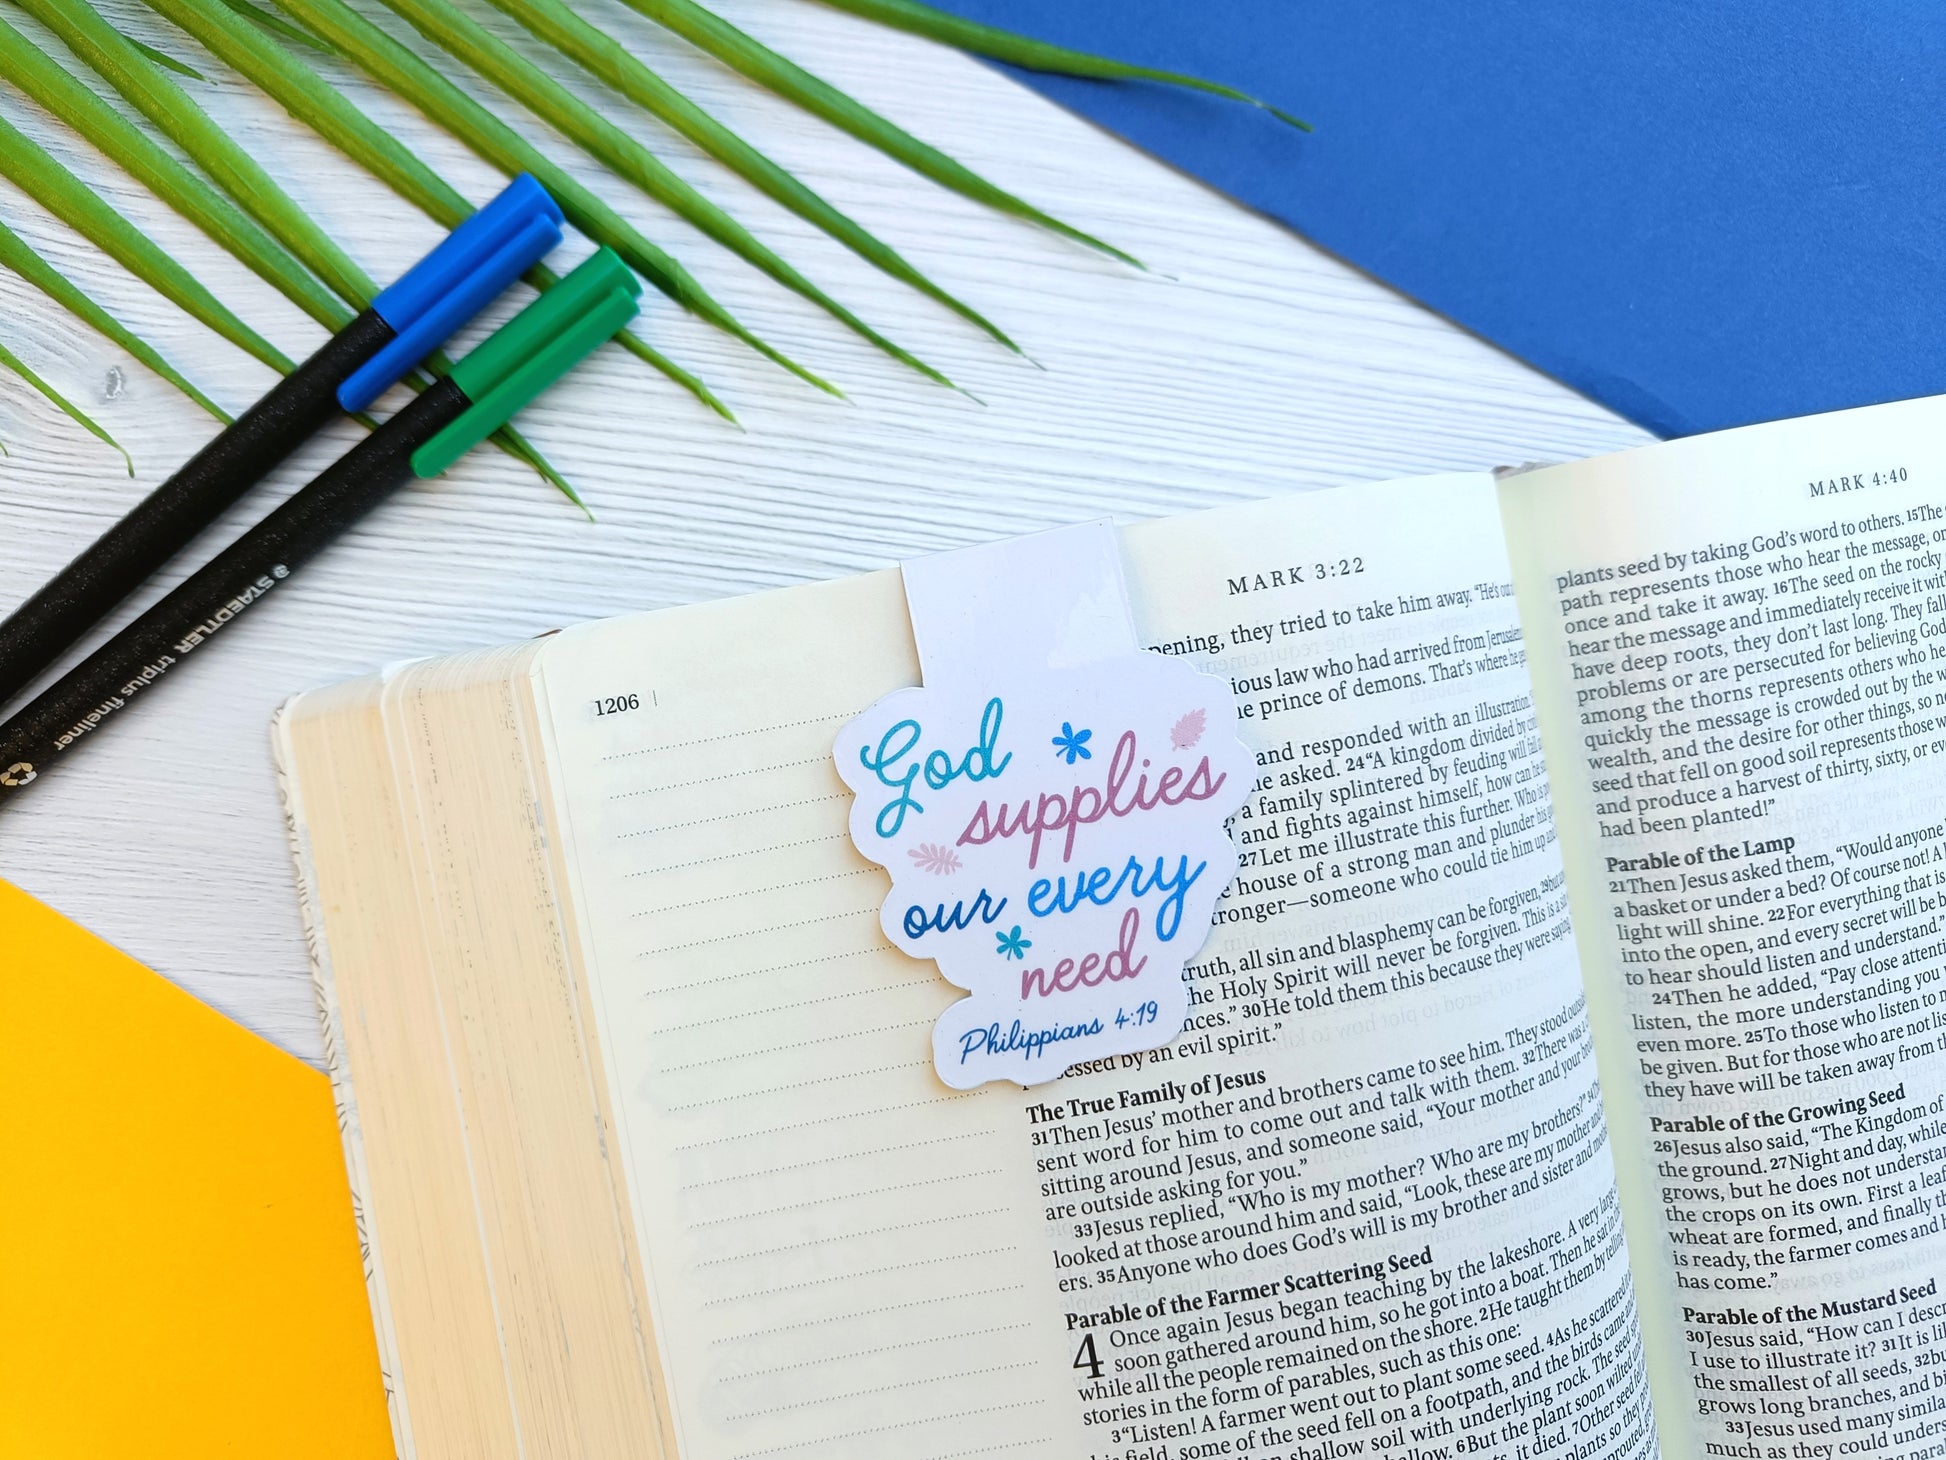 STAEDTLER triplus fineliner
1206
God
supplies
our every
need
Philippians 4:19
MARK 3:22
they tried to take him away. "He's
ious law who had arrived from Jerusalem
prince of demons. That's where he
and responded with an illustration.
asked. 24"A kingdom divided by
a family splintered by feuding will
and fights against himself, how can
27Let me illustrate this further. Who is
house of a strong man and plunder his
tronger—someone who could tie him up
truth, all sin and blasphemy can be forgiven, 29but
the Holy Spirit will never be forgiven. This is a sin
nces." 30He told them this because they were saying
essed by an evil spirit."
The True Family of Jesus
31Then Jesus' mother and brothers came to see him. They stood outside
sent word for him to come out and talk with them. 32There was a
sitting around Jesus, and someone said, "Your mother and your
are outside asking for you."
33Jesus replied, "Who is my mother? Who are my brothers?" 34
looked at those around him and said, "Look, these are my mother and
ers. 35Anyone who does God's will is my brother and sister and
Parable of the Farmer Scattering Seed
4 Once again Jesus began teaching by the lakeshore. A very large
soon gathered around him, so he got into a boat. Then he sat in
while all the people remained on the shore. 2He taught them by telling
stories in the form of parables, such as this one:
3"Listen! A farmer went out to plant some seed. 4As he scattered
his field, some of the seed fell on a footpath, and the birds came
shallow soil with underlying rock. The seed
6But the plant soon wilted
it died. 7Other seed
plants so
MARK 4:40
plants seed by taking God's word to others. 15The
path represents those who hear the message,
once and take it away. 16The seed on the rocky
hear the message and immediately receive it
have deep roots, they don't last long. They fall
problems or are persecuted for believing God
among the thorns represents others who
quickly the message is crowded out by the
wealth, and the desire for other things, so
seed that fell on good soil represents those
and produce a harvest of thirty, sixty, or
had been planted!"
Parable of the Lamp
21Then Jesus asked them, "Would anyone
a basket or under a bed? Of course not! A
light will shine. 22For everything that is
into the open, and every secret will be
to hear should listen and understand."
24Then he added, "Pay close
listen, the more understanding you
even more. 25To those who listen to
be given. But for those who are not
they have will be taken away from
Parable of the Growing Seed
26Jesus also said, "The Kingdom of
the ground. 27Night and day, while
grows, but he does not
the crops on its own. First a leaf
wheat are formed, and finally
is ready, the farmer comes and
has come."
Parable of the Mustard Seed
30Jesus said, "How can I
I use to illustrate it? 31It is
the smallest of all seeds, 32
grows long branches, and
33Jesus used many
much as they could